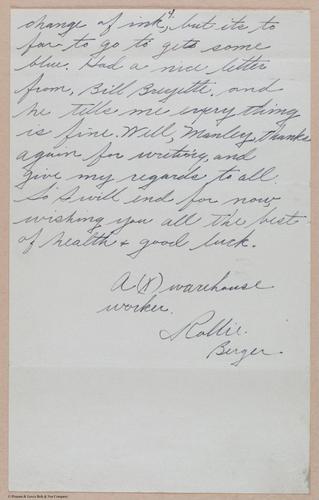 change of ink, but its to
far to go to gets some
blue. Had a nice letter
from, Bill Breyette, and
he tells me every thing
is fine. Well, Manley, thanks
again for writing, and
give my regards to all.
So I will end for now
wishing you all the best
of health & good luck.
A (X) warehouse
worker.
Rollie.
Berger.